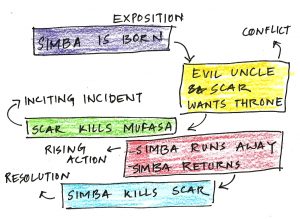 EXPOSITION
SIMBA IS BORN
CONFLICT
EVIL UNCLE
SCAR
WANTS THRONE
INCITING INCIDENT
SCAR KILLS MUFASA
RISING
ACTION
SIMBA RUNS AWAY
SIMBA RETURNS
RESOLUTION
SIMBA KILLS SCAR